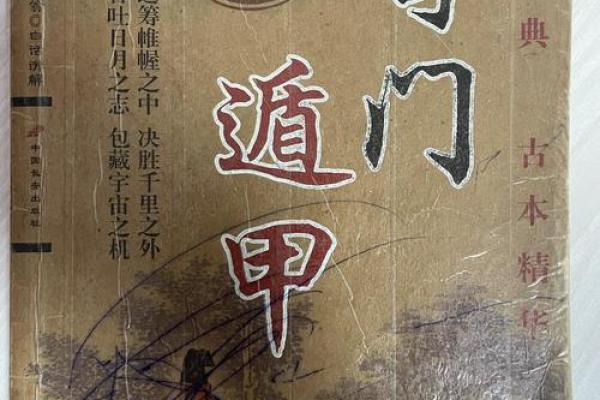 典 古本精华
门
遁甲
运筹帷幄之中 决胜千里之外
吐日月之志 包藏宇宙之机
白话译解
中国长安出版社